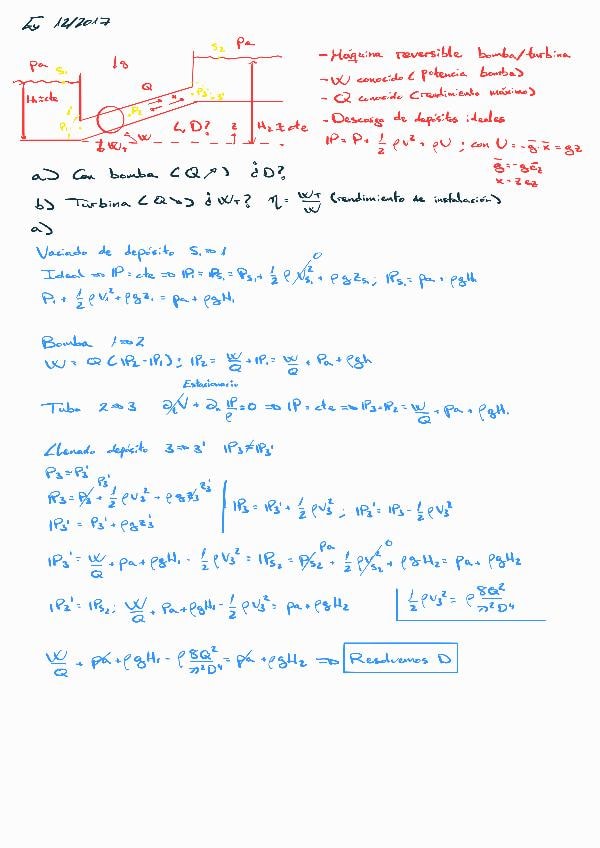 Ex 12/2017
pa S₁ ↓g S₂ pa
Q
H₁=cte P₁ P₂ P₃ 3' H₂=cte
L, D? z
W_T W
- Máquina reversible bomba/turbina
- W conocido (potencia bomba)
- Q conocido (rendimiento máximo)
- Descarga de depósitos ideales
IP = P + 1/2 ρv² + ρU ; con U = -g·x = gz
g = -g e_z
x = z e_z
a) Con bomba (Q↗) ¿D?
b) Turbina (Q↘) ¿W_T? η = W_T/W (rendimiento de instalación)
a)
Vaciado de depósito S₁ ⇒ 1
Ideal ⇒ IP = cte ⇒ IP₁ = IP_S₁ = P_S₁ + 1/2 ρ V_S₁² + ρ g z_S₁ ; IP_S₁ = pa + ρgH₁
0
P₁ + 1/2 ρ v₁² + ρgz₁ = pa + ρgH₁
Bomba 1 ⇒ 2
W = Q (IP₂ - IP₁) ; IP₂ = W/Q + IP₁ = W/Q + Pa + ρgh
Estacionario
Tubo 2 ⇒ 3 IP/ρ = 0 ⇒ IP = cte ⇒ IP₃ = IP₂ = W/Q + pa + ρgH₁
Llenado depósito 3 ⇒ 3' IP₃ ≠ IP₃'
P₃ = P₃'
IP₃ = P₃ + 1/2 ρ v₃² + ρgz₃
P₃' z₃'
IP₃' = P₃' + ρgz₃'
IP₃ = IP₃' + 1/2 ρ v₃² ; IP₃' = IP₃ - 1/2 ρ v₃²
IP₃' = W/Q + pa + ρgH₁ - 1/2 ρ v₃² = IP_S₂ = P_S₂ + 1/2 ρ v_S₂² + ρgH₂ = pa + ρgH₂
pa 0
IP₂' = IP_S₂ ; W/Q + pa + ρgH₁ - 1/2 ρ v₃² = pa + ρgH₂
1/2 ρ v₃² = ρ 8Q²/π²D⁴
W/Q + pa + ρgH₁ - ρ 8Q²/π²D⁴ = pa + ρgH₂ ⇒ Resolvemos D